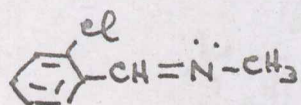 Cl
CH=N̈-CH3